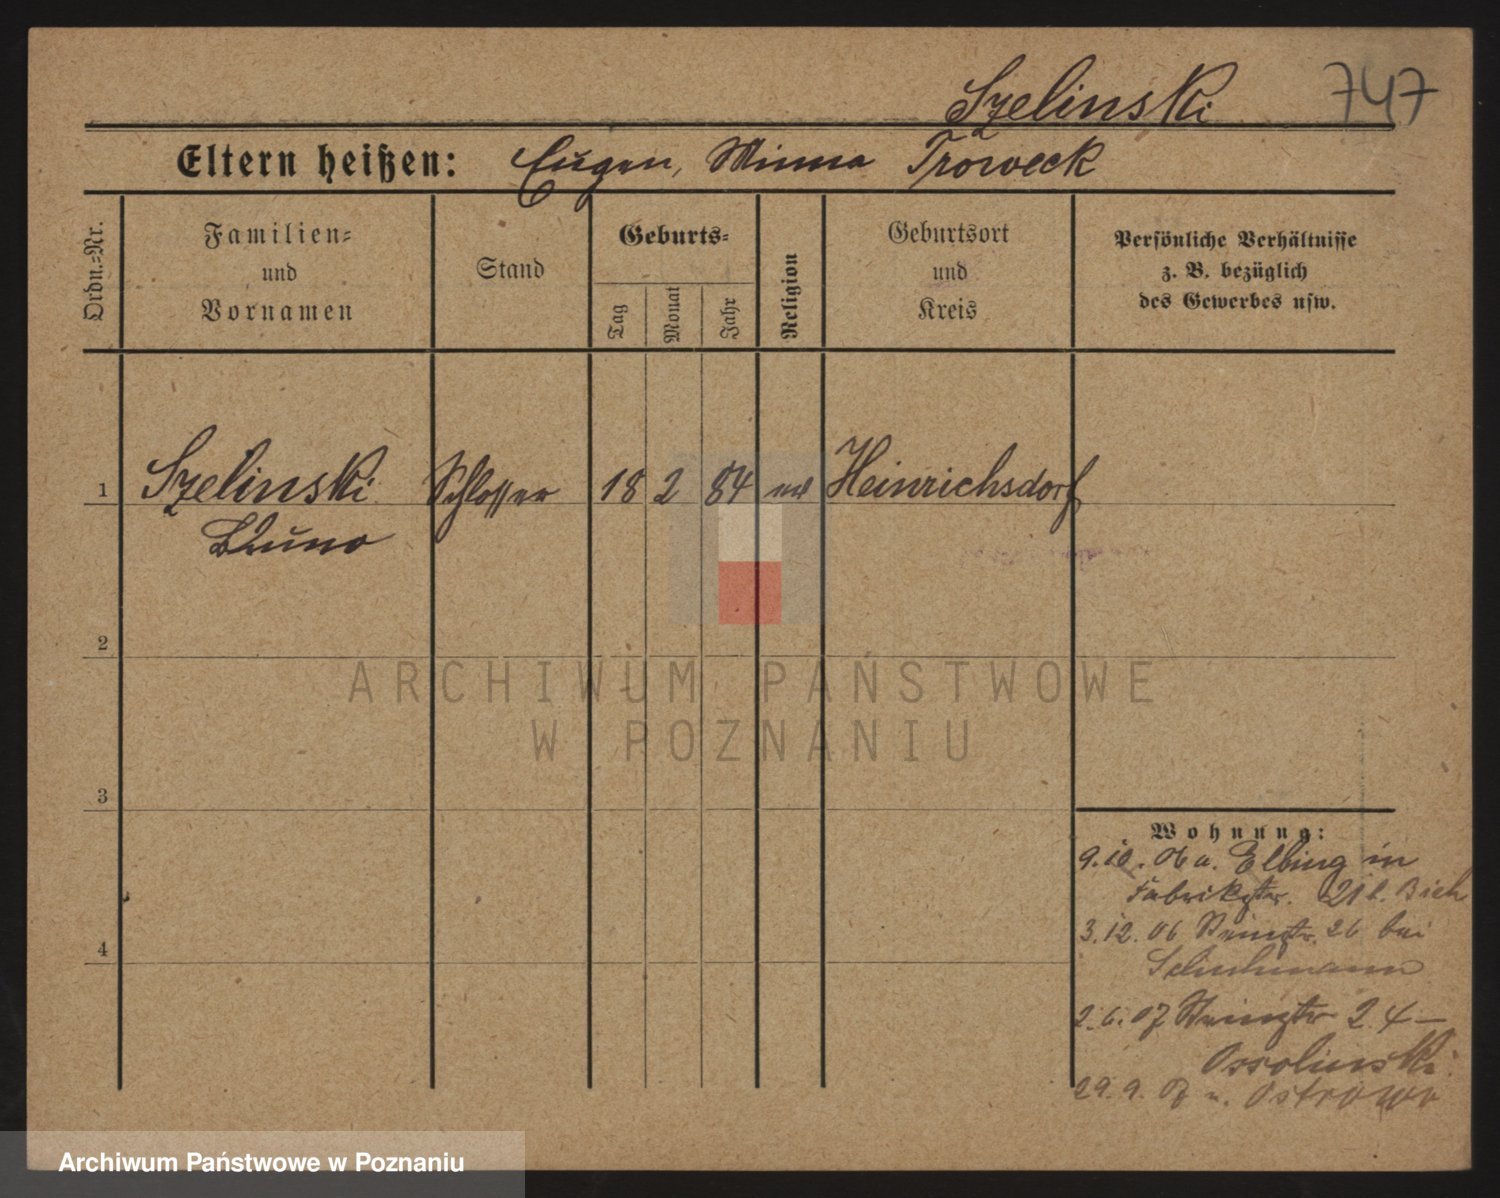 Szelinski 747
Eltern heißen: Eugen, Minna Troweck
Ordn.-Nr.
Familien-
und
Vornamen
Stand
Geburts-
Tag
Monat
Jahr
Religion
Geburtsort
und
Kreis
Persönliche Verhältnisse
z. B. bezüglich
des Gewerbes usw.
1 Szelinski Schlosser 18 2 84 Heinrichsdorf
Bruno
2
3
4
Wohnung:
9.10.06 a. Elbing in
Fabrikstr. 21 b.
3.12.06 26 bei
Schuhmann
2.6.07 24
Ossolinski
29.9.07 n. Ostrowo
ARCHIWUM PAŃSTWOWE
W POZNANIU
Archiwum Państwowe w Poznaniu